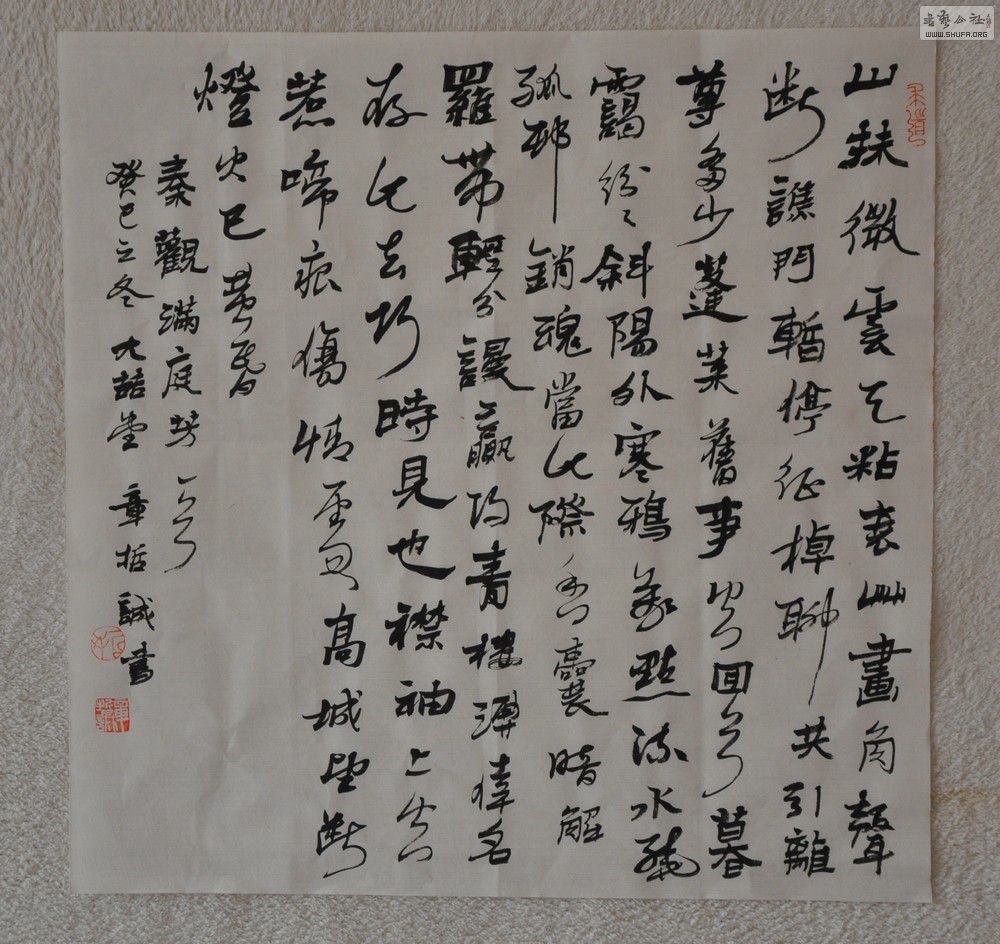 山抹微雲天粘衰草畫角聲
斷譙門暫停征棹聊共引離
尊多少蓬萊舊事空回首暮
靄紛紛斜陽外寒鴉萬點流水繞
孤邨銷魂當此際香囊暗解
羅帶輕分謾贏得青樓薄倖名
存此去何時見也襟袖上空
惹啼痕傷情處高城望斷
燈火已黃昏
秦觀滿庭芳一首
癸巳之冬大喆堂章哲誠書
書藝公社
WWW.SHUFA.ORG